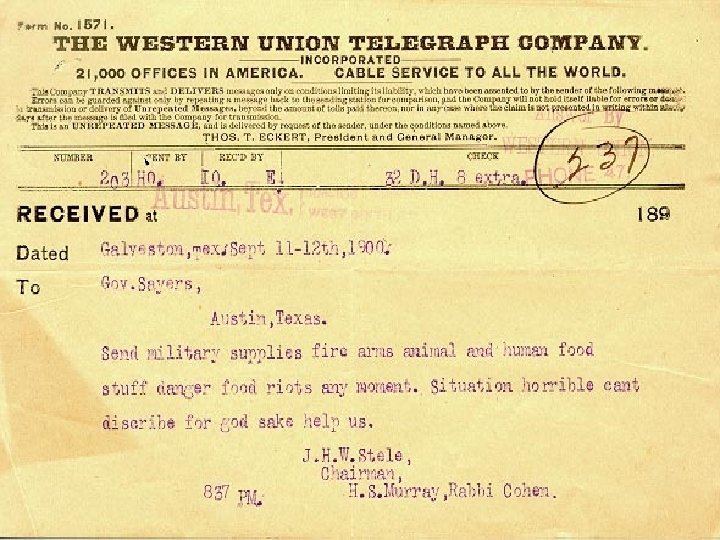 Form No. 1571.
THE WESTERN UNION TELEGRAPH COMPANY.
INCORPORATED
21,000 OFFICES IN AMERICA. CABLE SERVICE TO ALL THE WORLD.
This Company TRANSMITS and DELIVERS messages only on conditions limiting its liability, which have been assented to by the sender of the following
Errors can be guarded against only by repeating a message back to the sending station for comparison, and the Company will not hold itself liable for errors or
in transmission or delivery of Unrepeated Messages, beyond the amount of tolls paid thereon, nor in any case where the claim is not presented in writing within
days after the message is filed with the Company for transmission.
This is an UNREPEATED MESSAGE, and is delivered by request of the sender, under the conditions named above.
THOS. T. ECKERT, President and General Manager.
NUMBER SENT BY REC'D BY CHECK
203 HO. IQ. E. 32 D.H. 8 extra. PHONE 47
537
Austin, Tex.
RECEIVED at 189
Dated Galveston, Tex. Sept 11-12th, 1900.
To Gov. Sayers,
Austin, Texas.
Send military supplies fire arms animal and human food
stuff danger food riots any moment. Situation horrible cant
discribe for god sake help us.
J.H.W. Stele,
Chairman,
837 PM. H.S. Murray, Rabbi Cohen.